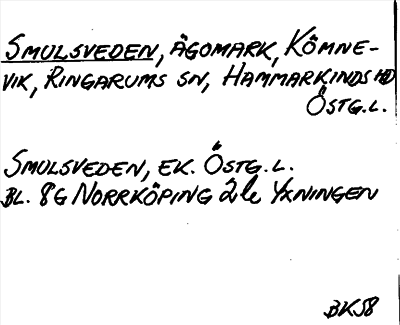 SMULSVEDEN, ÄGOMARK, KÖMNE-
VIK, RINGARUMS SN, HAMMARKINDS HD
ÖSTG.L.
SMULSVEDEN, EK. ÖSTG.L.
BL. 8G NORRKÖPING 2e YXNINGEN
BK58